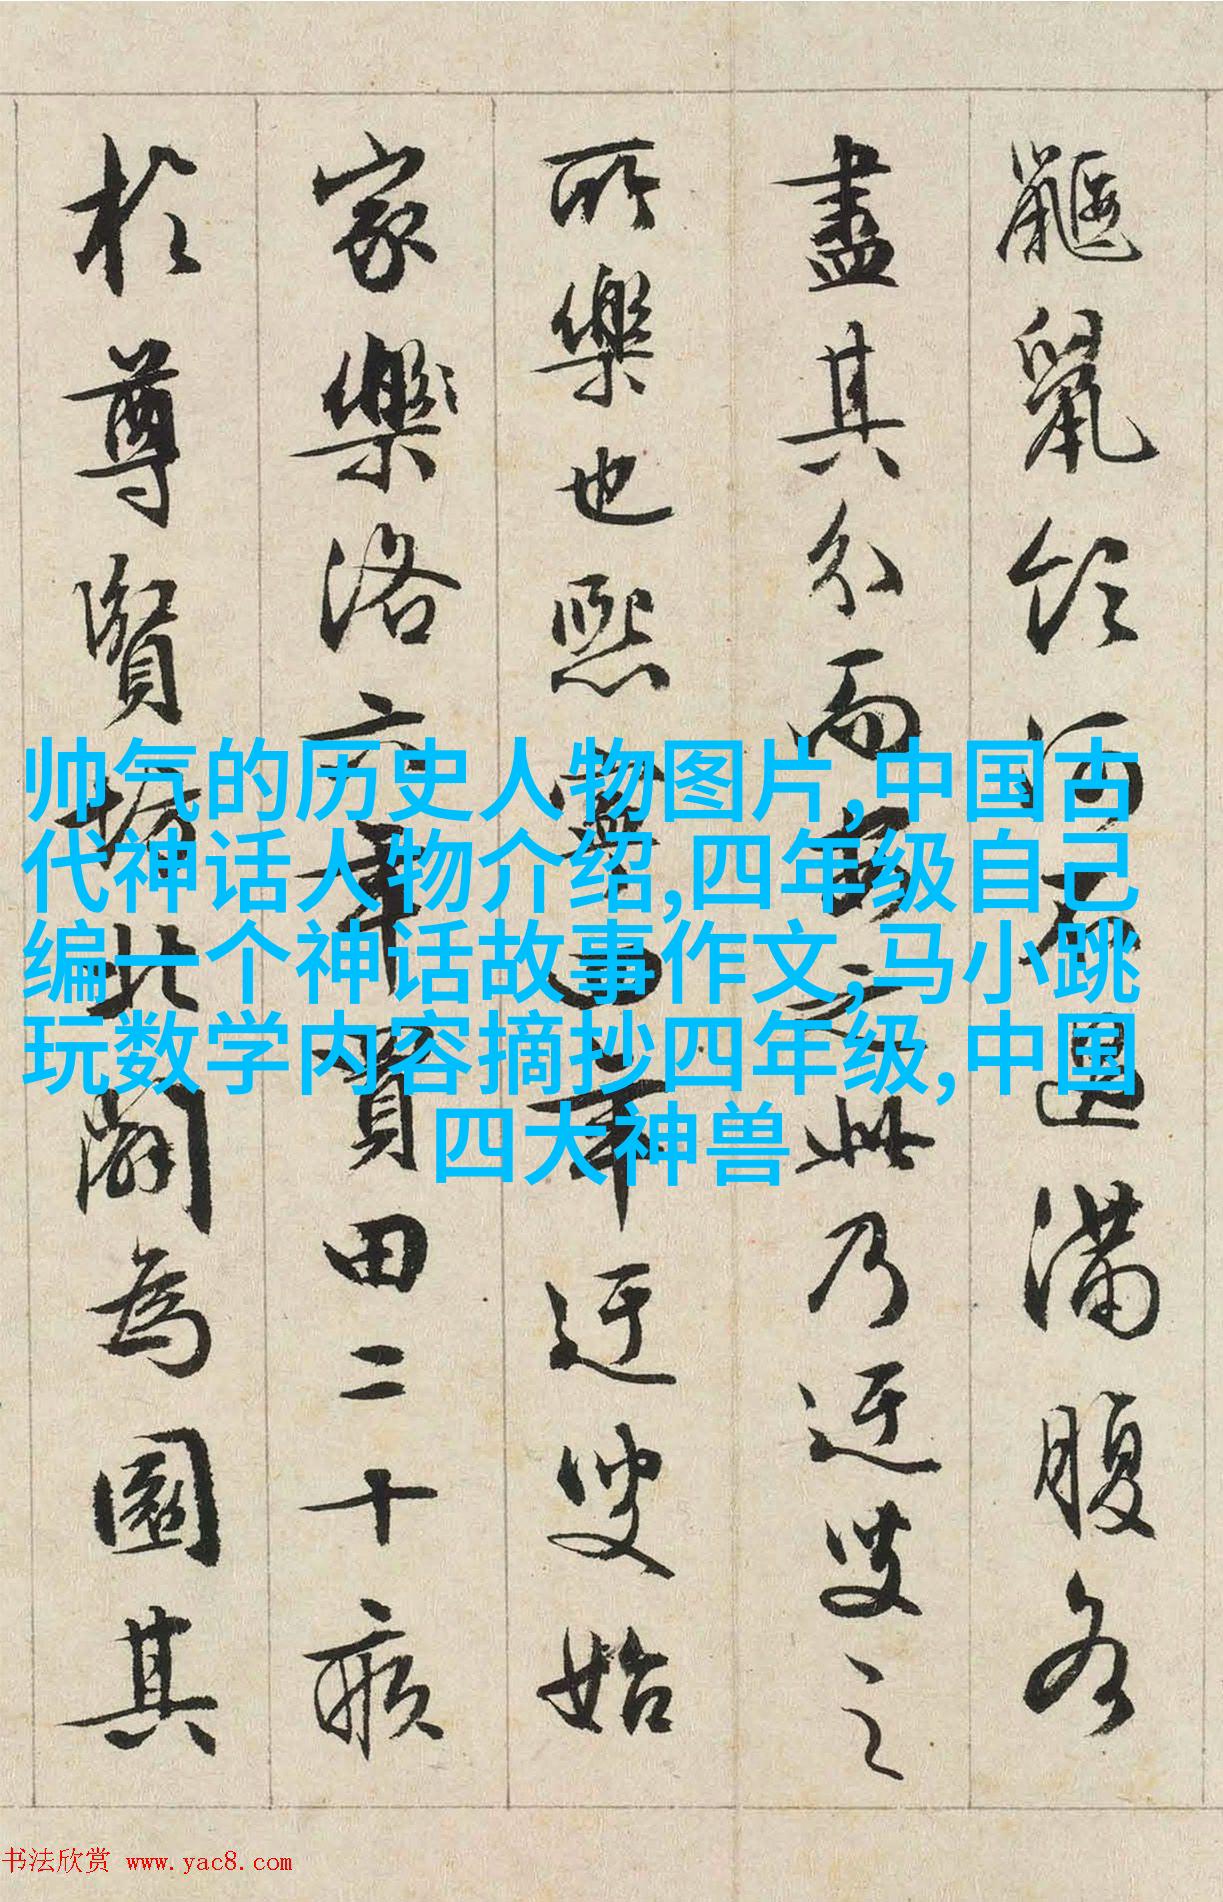 鼴鼠飲河不過滿腹各
盡其分而安之此乃迂叟之
所樂也熙寧四年迂叟始
家樂洛六年買田二十畝
於尊賢坊北闢為園其
帅气的历史人物图片,中国古
代神话人物介绍,四年级自己
编一个神话故事作文,马小跳
玩数学内容摘抄四年级,中国
四大神兽
书法欣赏 www.yac8.com